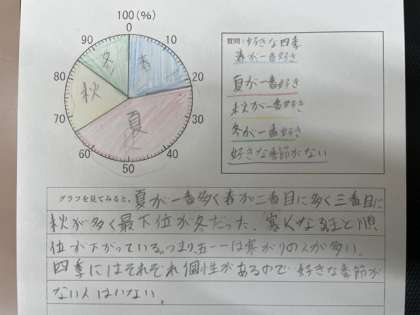 100 (%)
0
10
20
30
40
50
60
70
80
90
春
夏
秋
冬
質問：好きな四季
春が一番好き
夏が一番好き
秋が一番好き
冬が一番好き
好きな季節がない
グラフを見てみると、夏が一番多く春が二番目に多く三番目に
秋が多く最下位が冬だった。寒くなると順
位が下がっている。つまり五一は寒がりの人が多い。
四季にはそれぞれ個性があるので好きな季節が
ない人はいない。